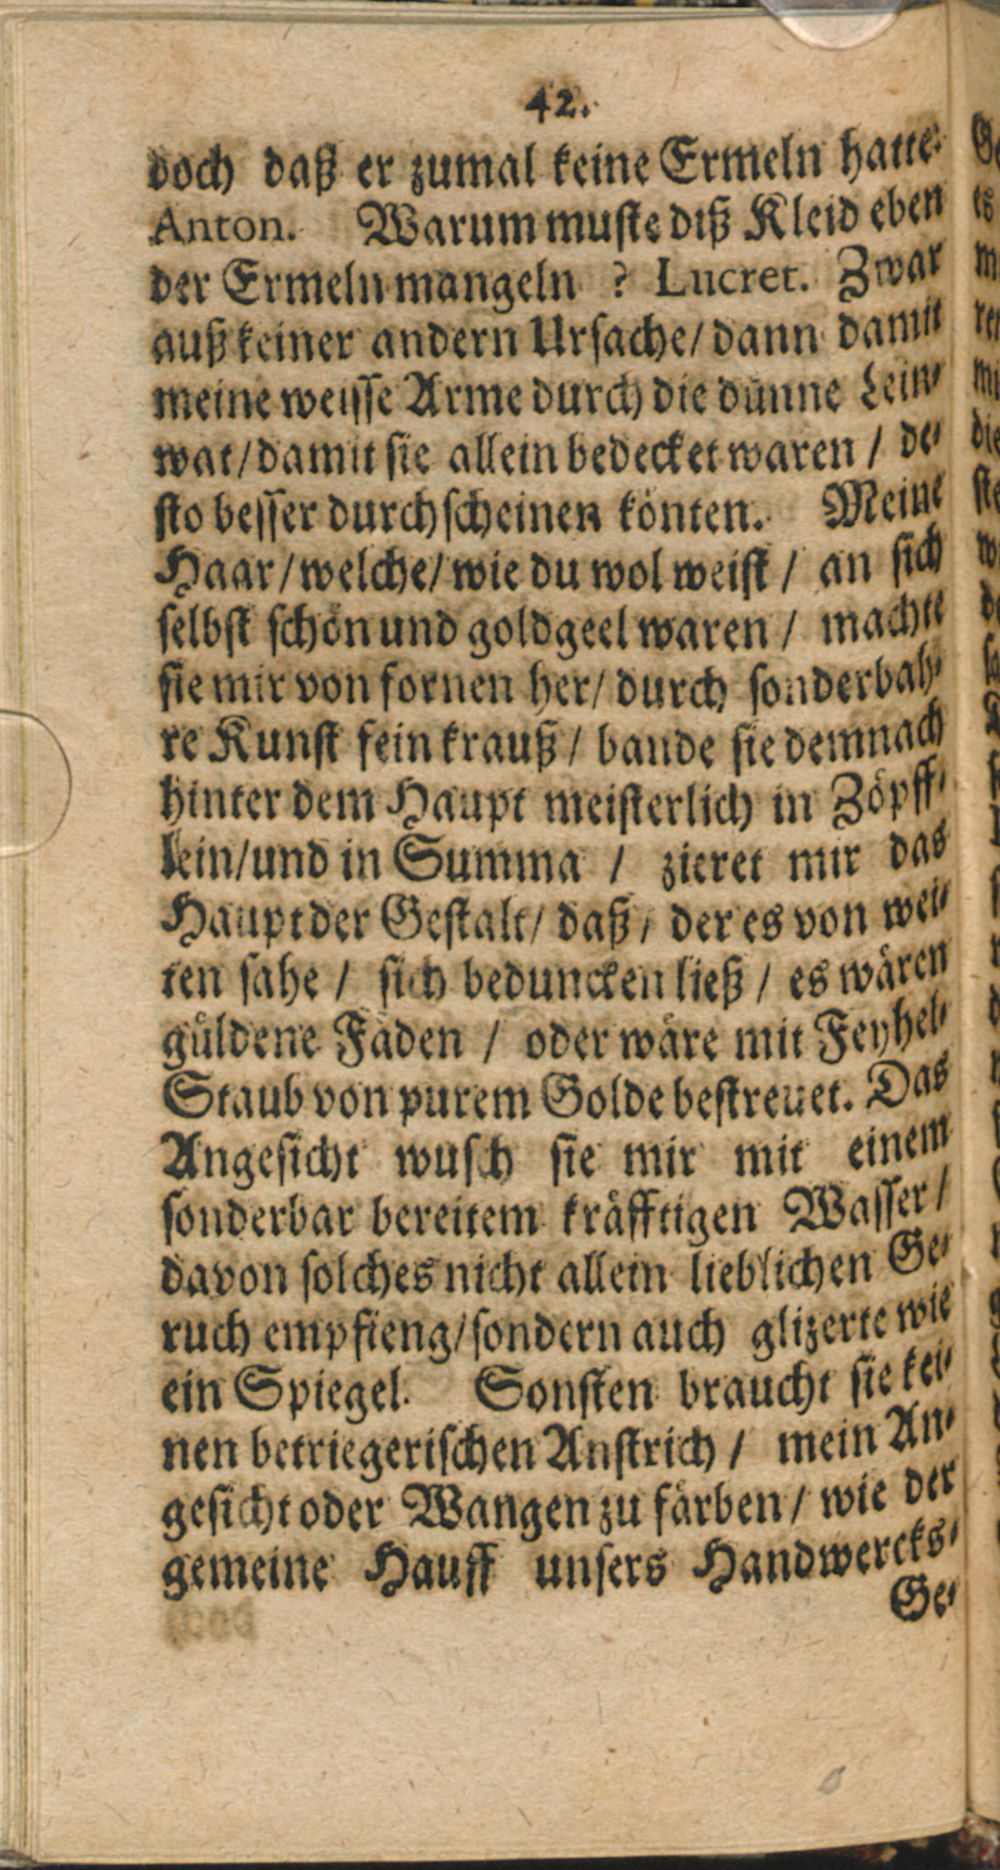 42.
doch daß er zumal keine Ermeln hatte.
Anton. Warum muste diß Kleid eben
der Ermeln mangeln ? Lucret. Zwar
auß keiner andern Ursache/ dann damit
meine weisse Arme durch die dünne Lein-
wat/ damit sie allein bedecket waren / de-
sto besser durchscheinen könten. Meine
Haar/ welche/ wie du wol weist / an sich
selbst schön und goldgeel waren / machte
sie mir von fornen her/ durch sonderbah-
re Kunst fein krauß / bande sie demnach
hinter dem Haupt meisterlich in Zöpff-
lein/ und in Summa / zieret mir das
Haupt der Gestalt/ daß / der es von wei-
ten sahe / sich beduncken ließ / es wären
güldene Fäden / oder wäre mit Feyhel-
Staub von purem Golde bestreuet. Das
Angesicht wusch sie mir mit einem
sonderbar bereitem kräfftigen Wasser /
davon solches nicht allein lieblichen Ge-
ruch empfieng/ sondern auch glizerte wie
ein Spiegel. Sonsten braucht sie kei-
nen betriegerischen Anstrich / mein An-
gesicht oder Wangen zu färben / wie der
gemeine Hauff unsers Handwercks-
Ge-